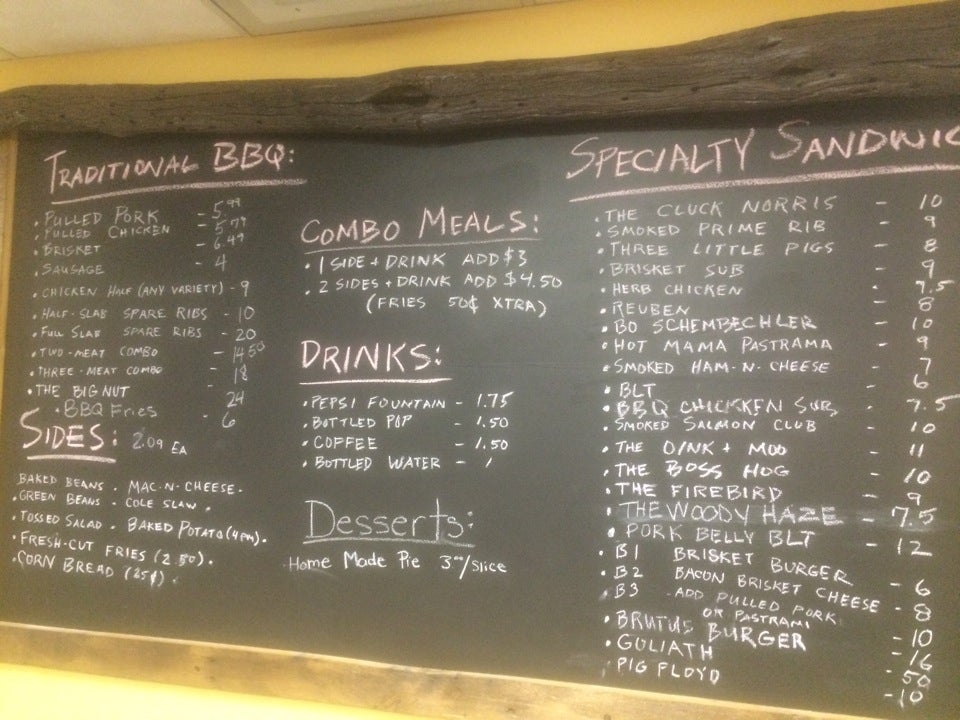 TRADITIONAL BBQ:
• PULLED PORK - 5.99
• PULLED CHICKEN - 5.79
• BRISKET - 6.49
• SAUSAGE - 4
• CHICKEN HALF (ANY VARIETY) - 9
• HALF-SLAB SPARE RIBS - 10
• FULL SLAB SPARE RIBS - 20
• TWO-MEAT COMBO - 14.50
• THREE-MEAT COMBO - 18
• THE BIG NUT - 24
• BBQ Fries - 6
SIDES: 2.09 EA
BAKED BEANS . MAC-N-CHEESE.
• GREEN BEANS . COLE SLAW.
• TOSSED SALAD . BAKED POTATO (4PM).
• FRESH-CUT FRIES (2.50).
• CORN BREAD (25¢).
COMBO MEALS:
• 1 SIDE + DRINK ADD $3
• 2 SIDES + DRINK ADD $4.50
(FRIES 50¢ XTRA)
DRINKS:
• PEPSI FOUNTAIN - 1.75
• BOTTLED POP - 1.50
• COFFEE - 1.50
• BOTTLED WATER - 1
Desserts:
• Home Made Pie 3.00/slice
SPECIALTY SANDWIC
• THE CLUCK NORRIS - 10
• SMOKED PRIME RIB - 9
• THREE LITTLE PIGS - 8
• BRISKET SUB - 9
• HERB CHICKEN - 7.5
• REUBEN - 8
• BO SCHEMBECHLER - 10
• HOT MAMA PASTRAMA - 9
• SMOKED HAM-N-CHEESE - 7
• BLT - 6
• BBQ CHICKKEN SUB - 7.5
• SMOKED SALMON CLUB - 10
• THE OINK + MOO - 11
• THE BOSS HOG - 10
• THE FIREBIRD - 9
• THE WOODY HAZE - 7.5
• PORK BELLY BLT - 12
• B1 BRISKET BURGER - 6
• B2 BACON BRISKET CHEESE - 8
• B3 ADD PULLED PORK OR PASTRAMI - 10
• BRUTUS BURGER - 16
• GOLIATH - 50
• PIG FLOYD - 10